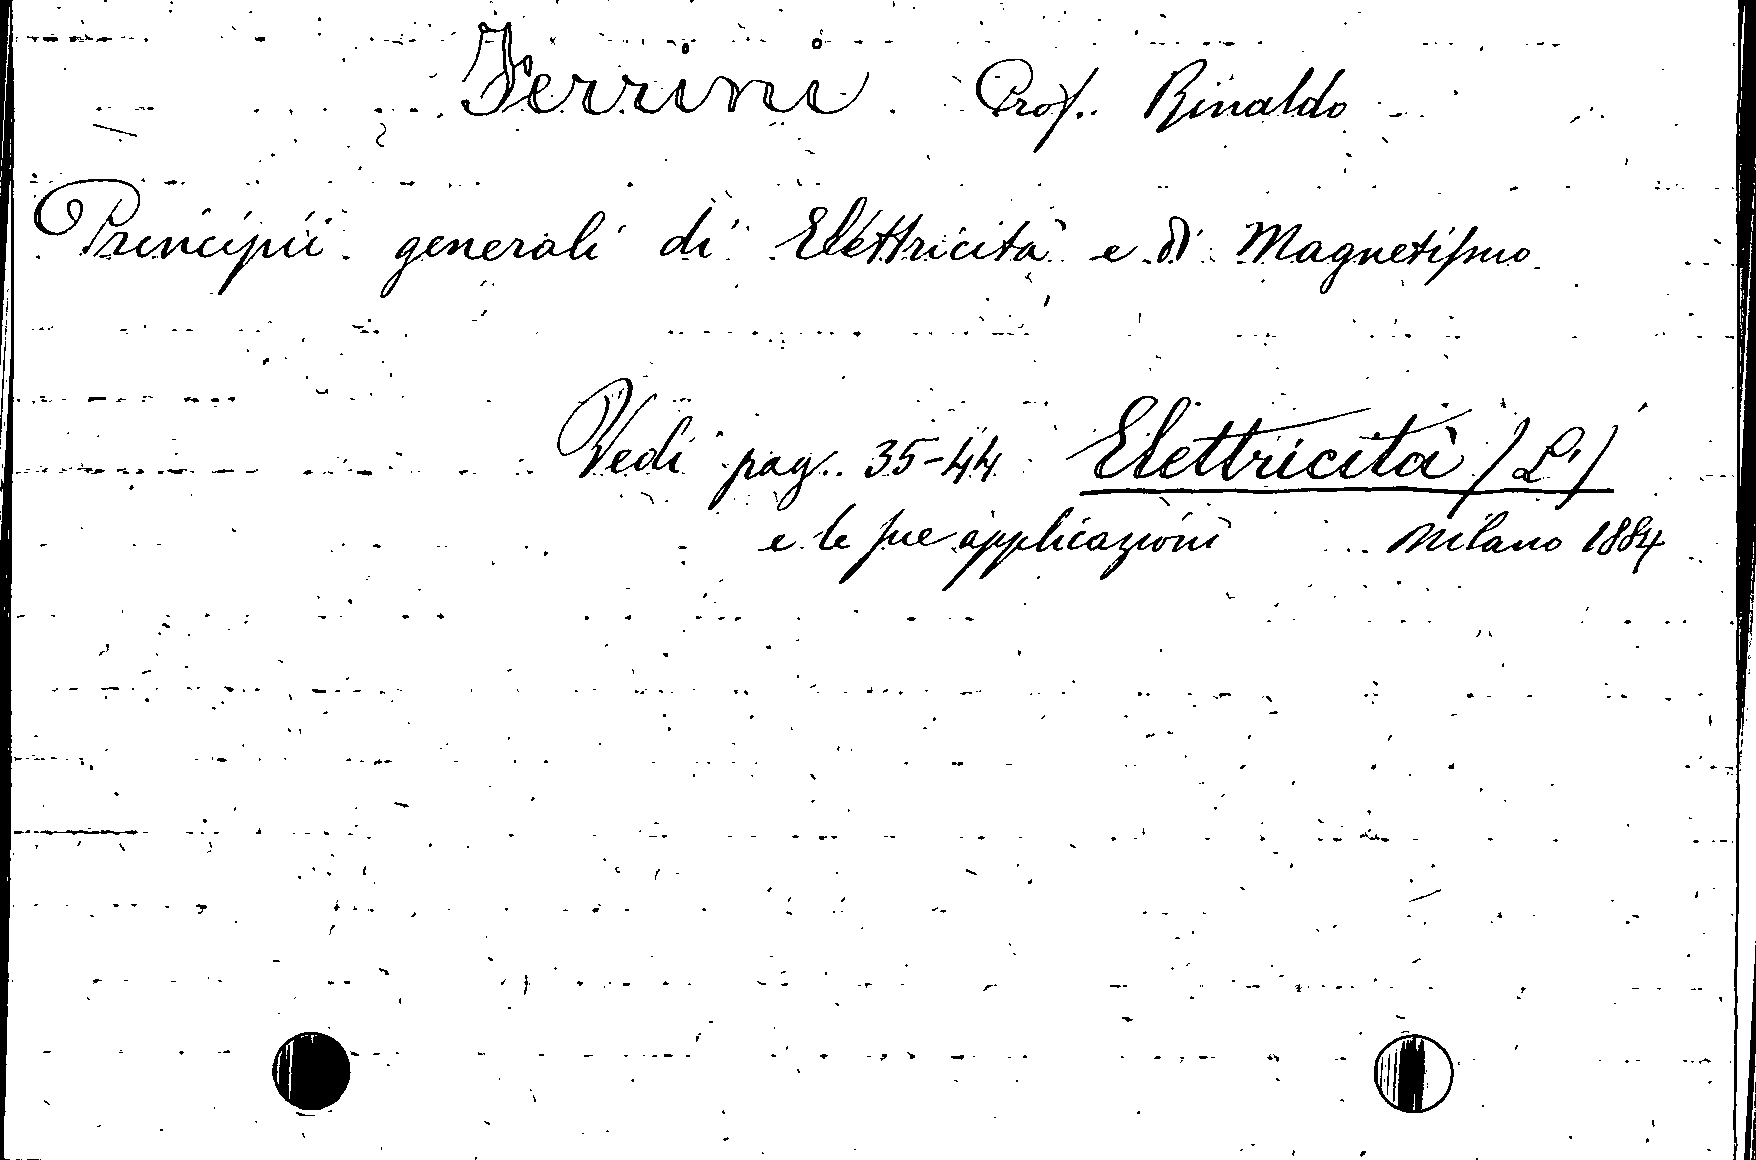 Ferrini Prof. Rinaldo
Principii generali di Elettricità e di Magnetismo
Vedi pag. 35-44 Elettricità (L')
e le sue applicazioni Milano 1884